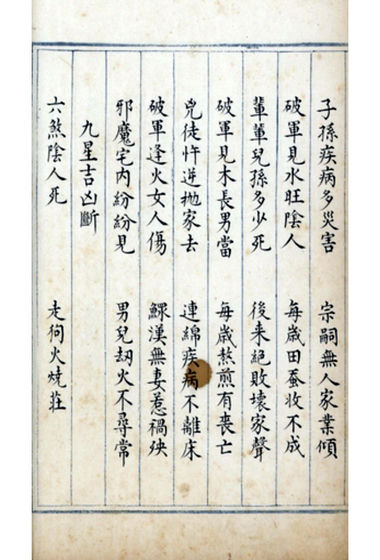 子孫疾病多災害　宗嗣無人家業傾
破軍見水旺陰人　每歲田蚕收不成
輩輩兒孫多少死　後来絕敗壞家聲
破軍見木長男當　每歲熬煎有喪亡
兇徒忤逆抛家去　連綿疾病不離床
破軍逢火女人傷　鰥漢無妻惹禍殃
邪魔宅内紛紛見　男兒刼火不尋常
九星吉凶斷
六煞陰人死　走狗火燒莊